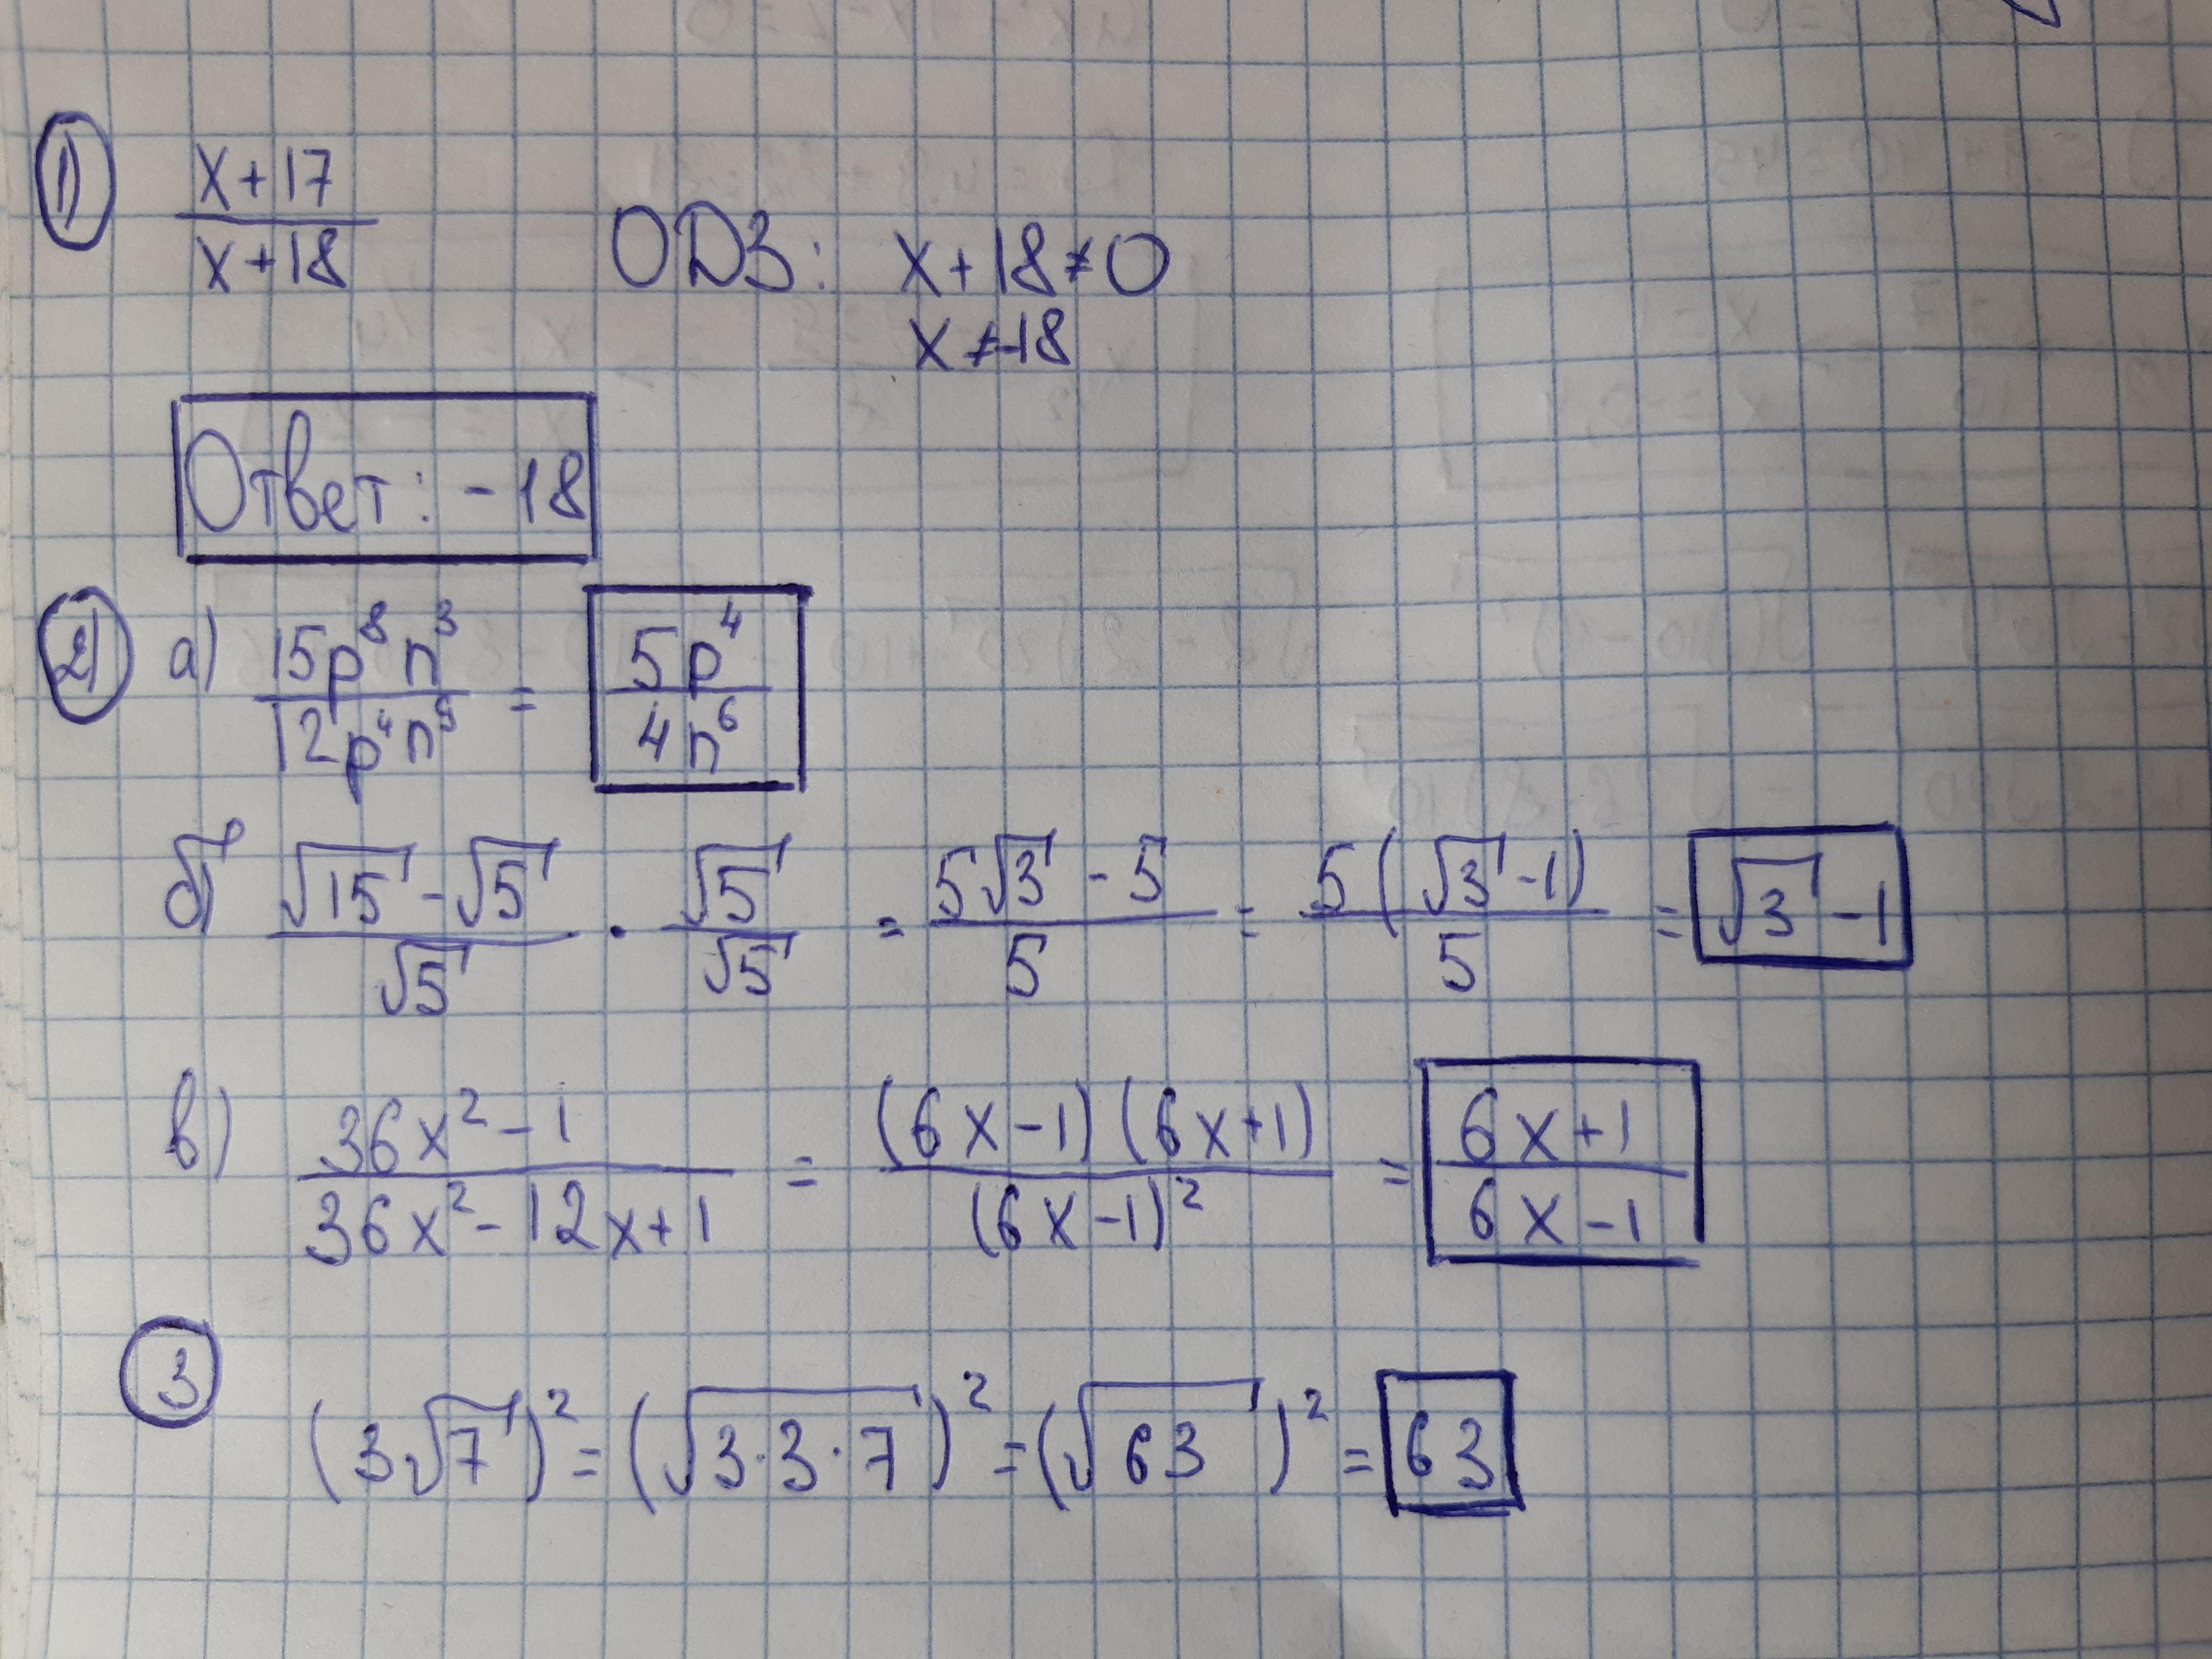 1) (x+17)/(x+18) ОДЗ: x+18≠0
x≠-18
Ответ: -18
2) а) (15p⁸n³)/(12p⁴n⁹) = (5p⁴)/(4n⁶)
б) (√15 - √5)/√5 · √5/√5 = (5√3 - 5)/5 = 5(√3 - 1)/5 = √3 - 1
в) (36x² - 1)/(36x² - 12x + 1) = (6x - 1)(6x + 1)/(6x - 1)² = (6x + 1)/(6x - 1)
3
(3√7)² = (√(3·3·7))² = (√63)² = 63